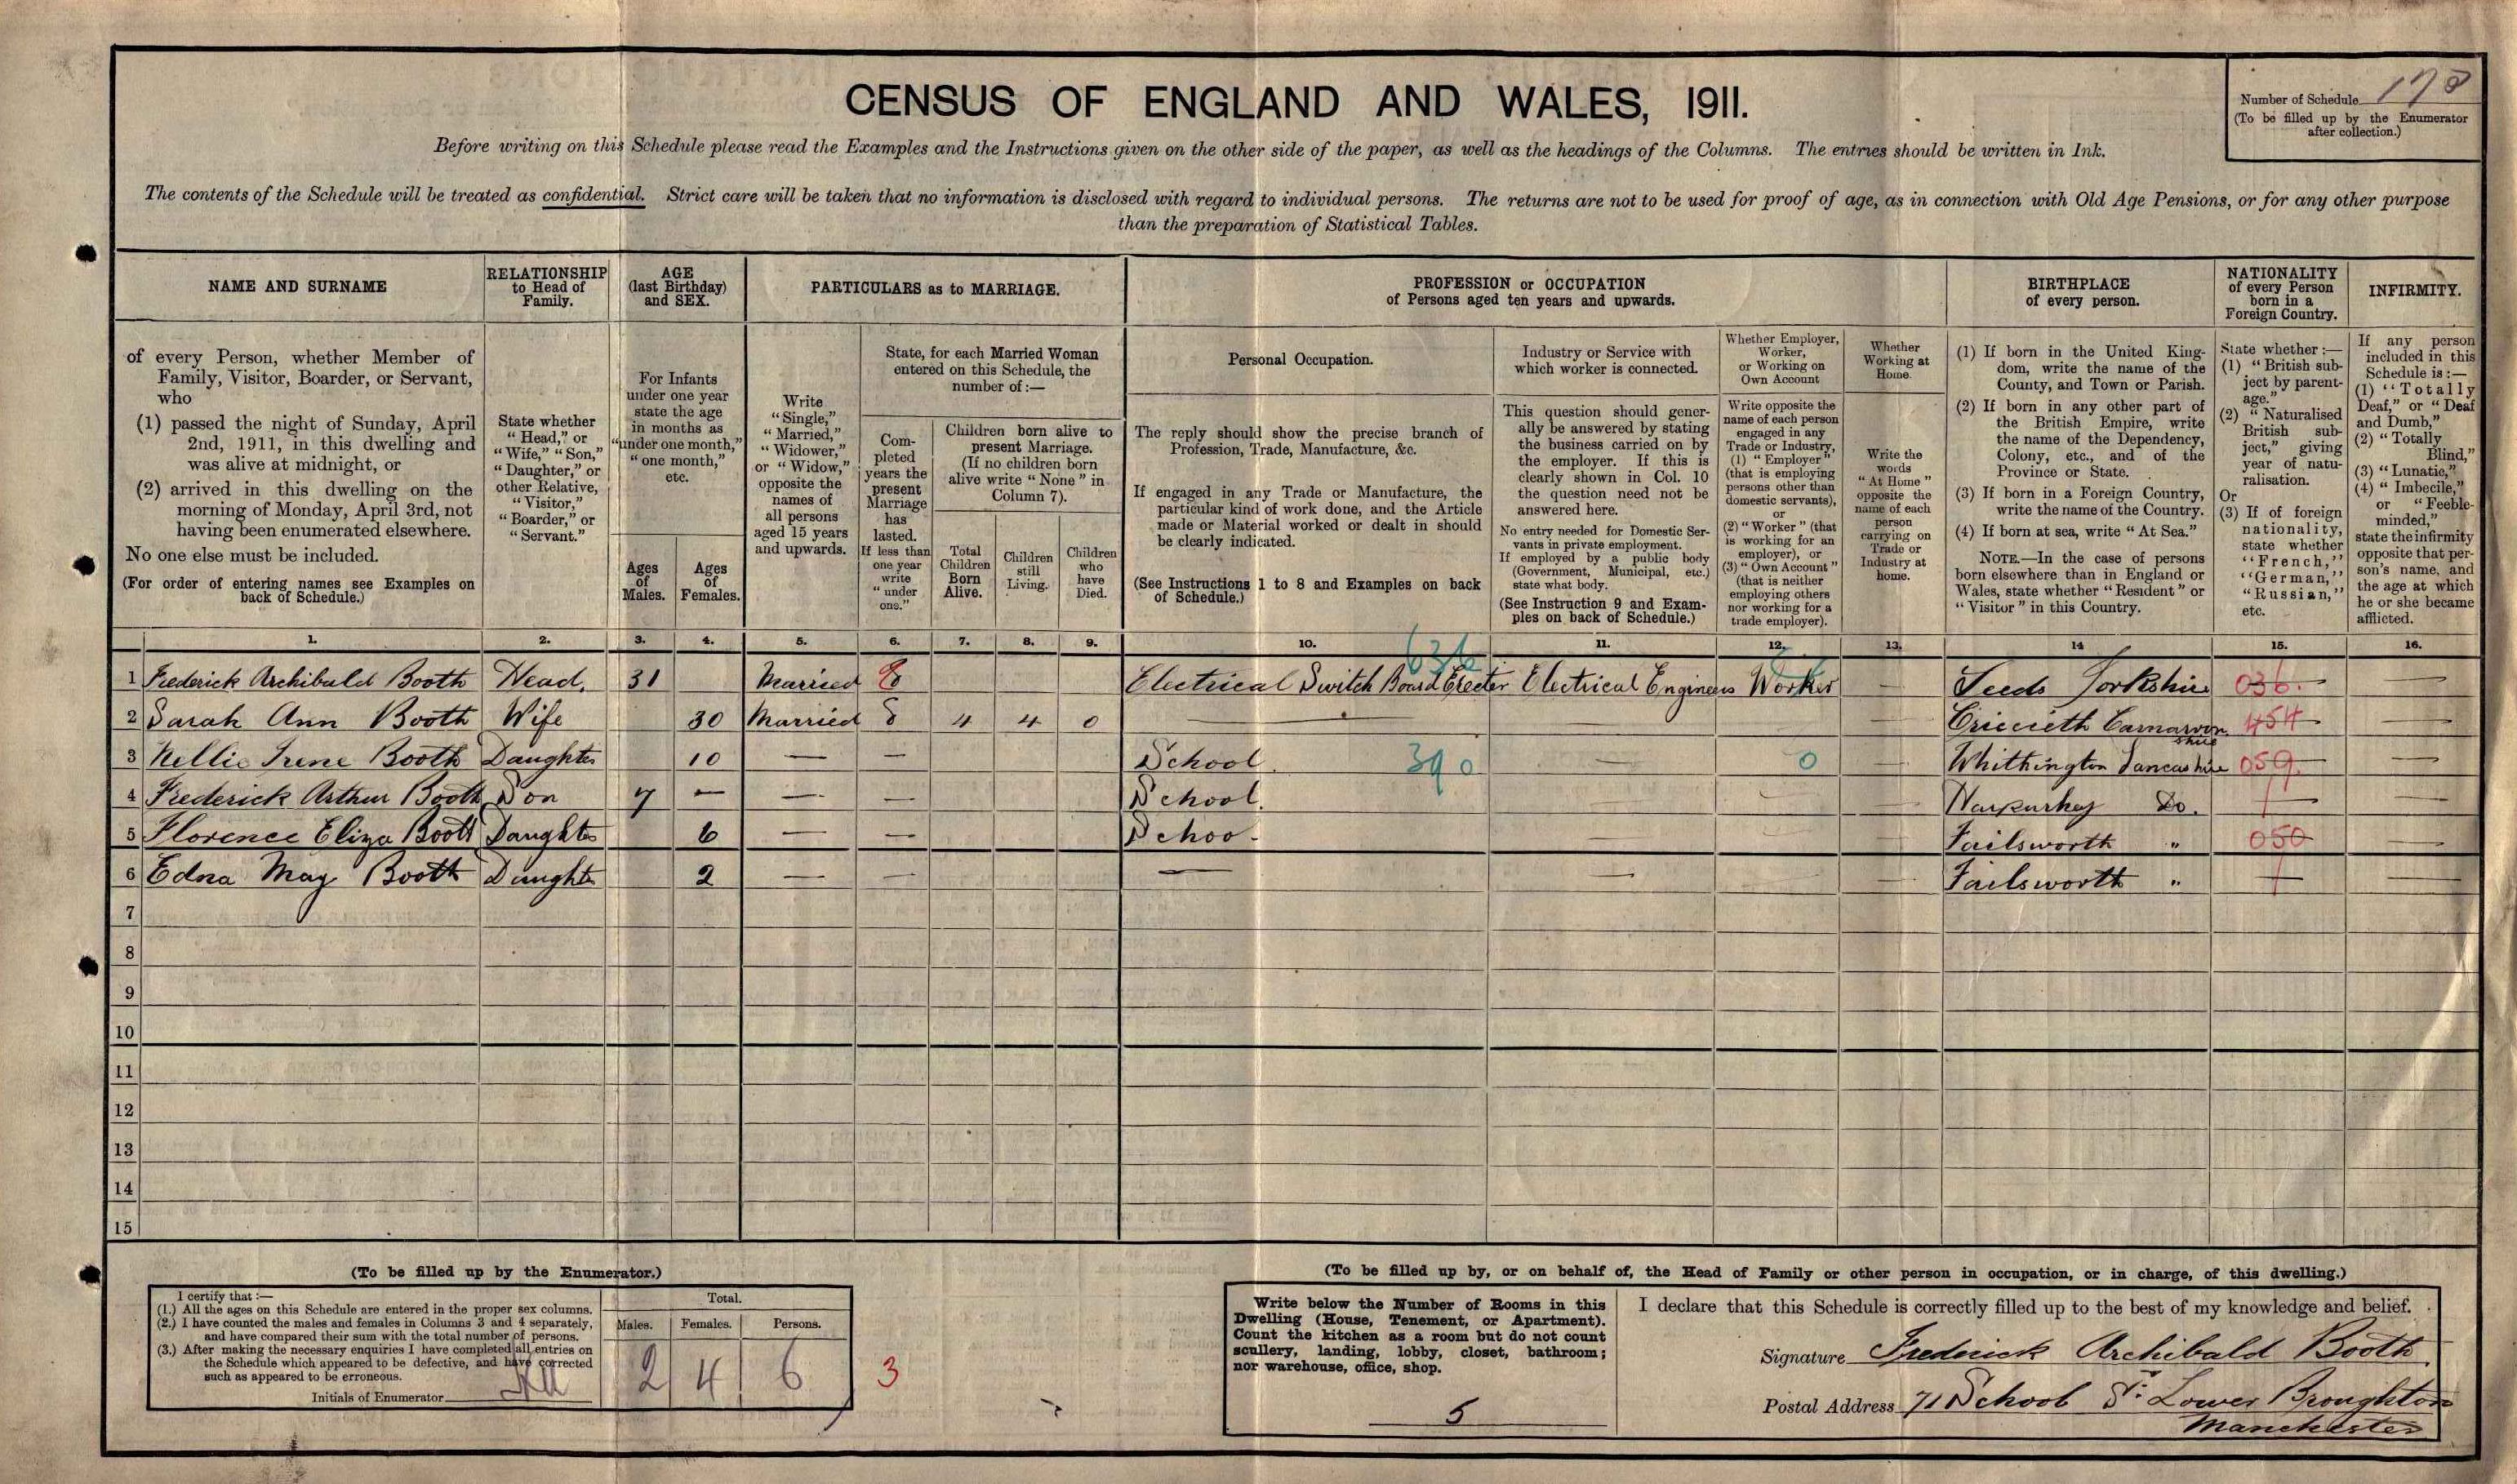 CENSUS OF ENGLAND AND WALES, 1911.
Number of Schedule 178
(To be filled up by the Enumerator
after collection.)
Before writing on this Schedule please read the Examples and the Instructions given on the other side of the paper, as well as the headings of the Columns. The entries should be written in Ink.
The contents of the Schedule will be treated as confidential. Strict care will be taken that no information is disclosed with regard to individual persons. The returns are not to be used for proof of age, as in connection with Old Age Pensions, or for any other purpose
than the preparation of Statistical Tables.
NAME AND SURNAME
of every Person, whether Member of
Family, Visitor, Boarder, or Servant,
who
(1) passed the night of Sunday, April
2nd, 1911, in this dwelling and
was alive at midnight, or
(2) arrived in this dwelling on the
morning of Monday, April 3rd, not
having been enumerated elsewhere.
No one else must be included.
(For order of entering names see Examples on
back of Schedule.)
RELATIONSHIP
to Head of
Family.
State whether
"Head," or
"Wife," "Son,"
"Daughter," or
other Relative,
"Visitor,"
"Boarder," or
"Servant."
AGE
(last Birthday)
and SEX.
For Infants
under one year
state the age
in months as
"under one month,"
"one month,"
etc.
Ages
of
Males.
Ages
of
Females.
PARTICULARS as to MARRIAGE.
Write
"Single,"
"Married,"
"Widower,"
or "Widow,"
opposite the
names of
all persons
aged 15 years
and upwards.
State, for each Married Woman
entered on this Schedule, the
number of:—
Com-
pleted
years the
present
Marriage
has
lasted.
If less than
one year
write
"under
one."
Children born alive to
present Marriage.
(If no children born
alive write "None" in
Column 7).
Total
Children
Born
Alive.
Children
still
Living.
Children
who
have
Died.
PROFESSION or OCCUPATION
of Persons aged ten years and upwards.
Personal Occupation.
The reply should show the precise branch of
Profession, Trade, Manufacture, &c.
If engaged in any Trade or Manufacture, the
particular kind of work done, and the Article
made or Material worked or dealt in should
be clearly indicated.
(See Instructions 1 to 8 and Examples on back
of Schedule.)
Industry or Service with
which worker is connected.
This question should gener-
ally be answered by stating
the business carried on by
the employer. If this is
clearly shown in Col. 10
the question need not be
answered here.
No entry needed for Domestic Ser-
vants in private employment.
If employed by a public body
(Government, Municipal, etc.)
state what body.
(See Instruction 9 and Exam-
ples on back of Schedule.)
Whether Employer,
Worker,
or Working on
Own Account
Write opposite the
name of each person
engaged in any
Trade or Industry,
(1) "Employer"
(that is employing
persons other than
domestic servants),
or
(2) "Worker" (that
is working for an
employer), or
(3) "Own Account"
(that is neither
employing others
nor working for a
trade employer).
Whether
Working at
Home.
Write the
words
"At Home"
opposite the
name of each
person
carrying on
Trade or
Industry at
home.
BIRTHPLACE
of every person.
(1) If born in the United King-
dom, write the name of the
County, and Town or Parish.
(2) If born in any other part of
the British Empire, write
the name of the Dependency,
Colony, etc., and of the
Province or State.
(3) If born in a Foreign Country,
write the name of the Country.
(4) If born at sea, write "At Sea."
NOTE.—In the case of persons
born elsewhere than in England or
Wales, state whether "Resident" or
"Visitor" in this Country.
NATIONALITY
of every Person
born in a
Foreign Country.
State whether:—
(1) "British sub-
ject by parent-
age."
(2) "Naturalised
British sub-
ject," giving
year of natu-
ralisation.
Or
(3) If of foreign
nationality,
state whether
"French,"
"German,"
"Russian,"
etc.
INFIRMITY.
If any person
included in this
Schedule is:—
(1) "Totally
Deaf," or "Deaf
and Dumb,"
(2) "Totally
Blind,"
(3) "Lunatic,"
(4) "Imbecile,"
or "Feeble-
minded,"
state the infirmity
opposite that per-
son's name, and
the age at which
he or she became
afflicted.
1. 2. 3. 4. 5. 6. 7. 8. 9. 10. 11. 12. 13. 14 15. 16.
1 Frederick Archibald Booth Head. 31 Married 8 Electrical Switch Board Erecter 636 Electrical Engineers Worker — Leeds Yorkshire 036. —
2 Sarah Ann Booth Wife 30 Married 8 4 4 0 — — Criccieth Carnarvon shire 454 —
3 Nellie Irene Booth Daughter 10 — — School. 390 — 0 — Whithington Lancashire 059. —
4 Frederick Arthur Booth Son 7 — — — School. — — — Harpurhey Do. — —
5 Florence Eliza Booth Daughter 6 — — Schoo. — — — Failsworth " 050 —
6 Edna May Booth Daughter 2 — — — — — Failsworth " — —
7
8
9
10
11
12
13
14
15
(To be filled up by the Enumerator.)
I certify that:—
(1.) All the ages on this Schedule are entered in the proper sex columns.
(2.) I have counted the males and females in Columns 3 and 4 separately,
and have compared their sum with the total number of persons.
(3.) After making the necessary enquiries I have completed all entries on
the Schedule which appeared to be defective, and have corrected
such as appeared to be erroneous.
Initials of Enumerator
Total.
Males. Females. Persons.
2 4 6 3
(To be filled up by, or on behalf of, the Head of Family or other person in occupation, or in charge, of this dwelling.)
Write below the Number of Rooms in this
Dwelling (House, Tenement, or Apartment).
Count the kitchen as a room but do not count
scullery, landing, lobby, closet, bathroom;
nor warehouse, office, shop.
5
I declare that this Schedule is correctly filled up to the best of my knowledge and belief.
Signature Frederick Archibald Booth.
Postal Address 71 School St. Lower Broughton
Manchester